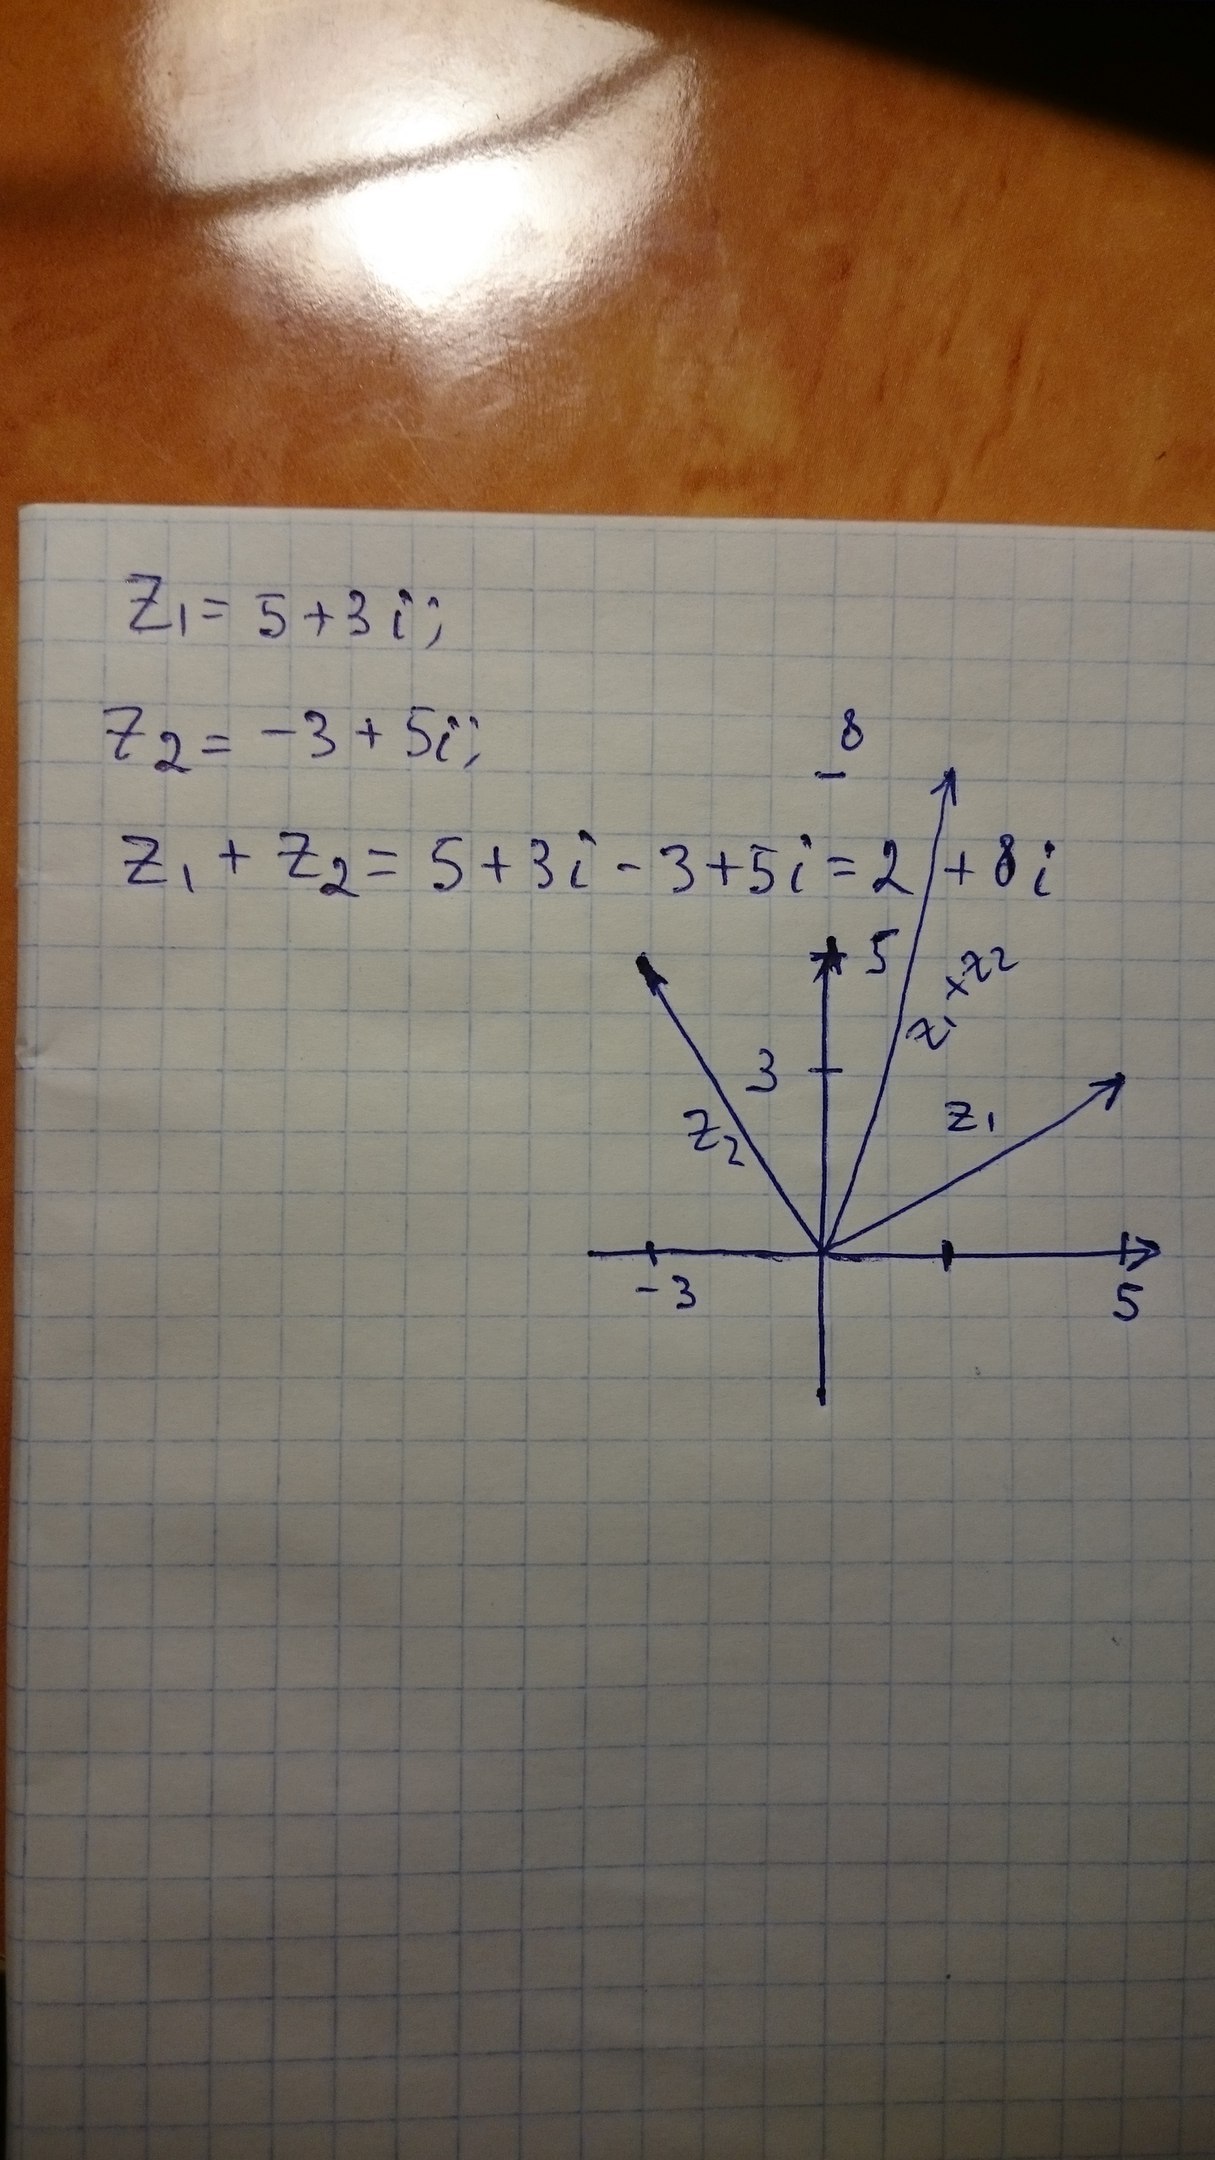 Z₁ = 5 + 3i;
Z₂ = -3 + 5i;
8
Z₁ + Z₂ = 5 + 3i - 3 + 5i = 2 + 8i
5
z₁ + z₂
3
Z₁
Z₂
-3
5